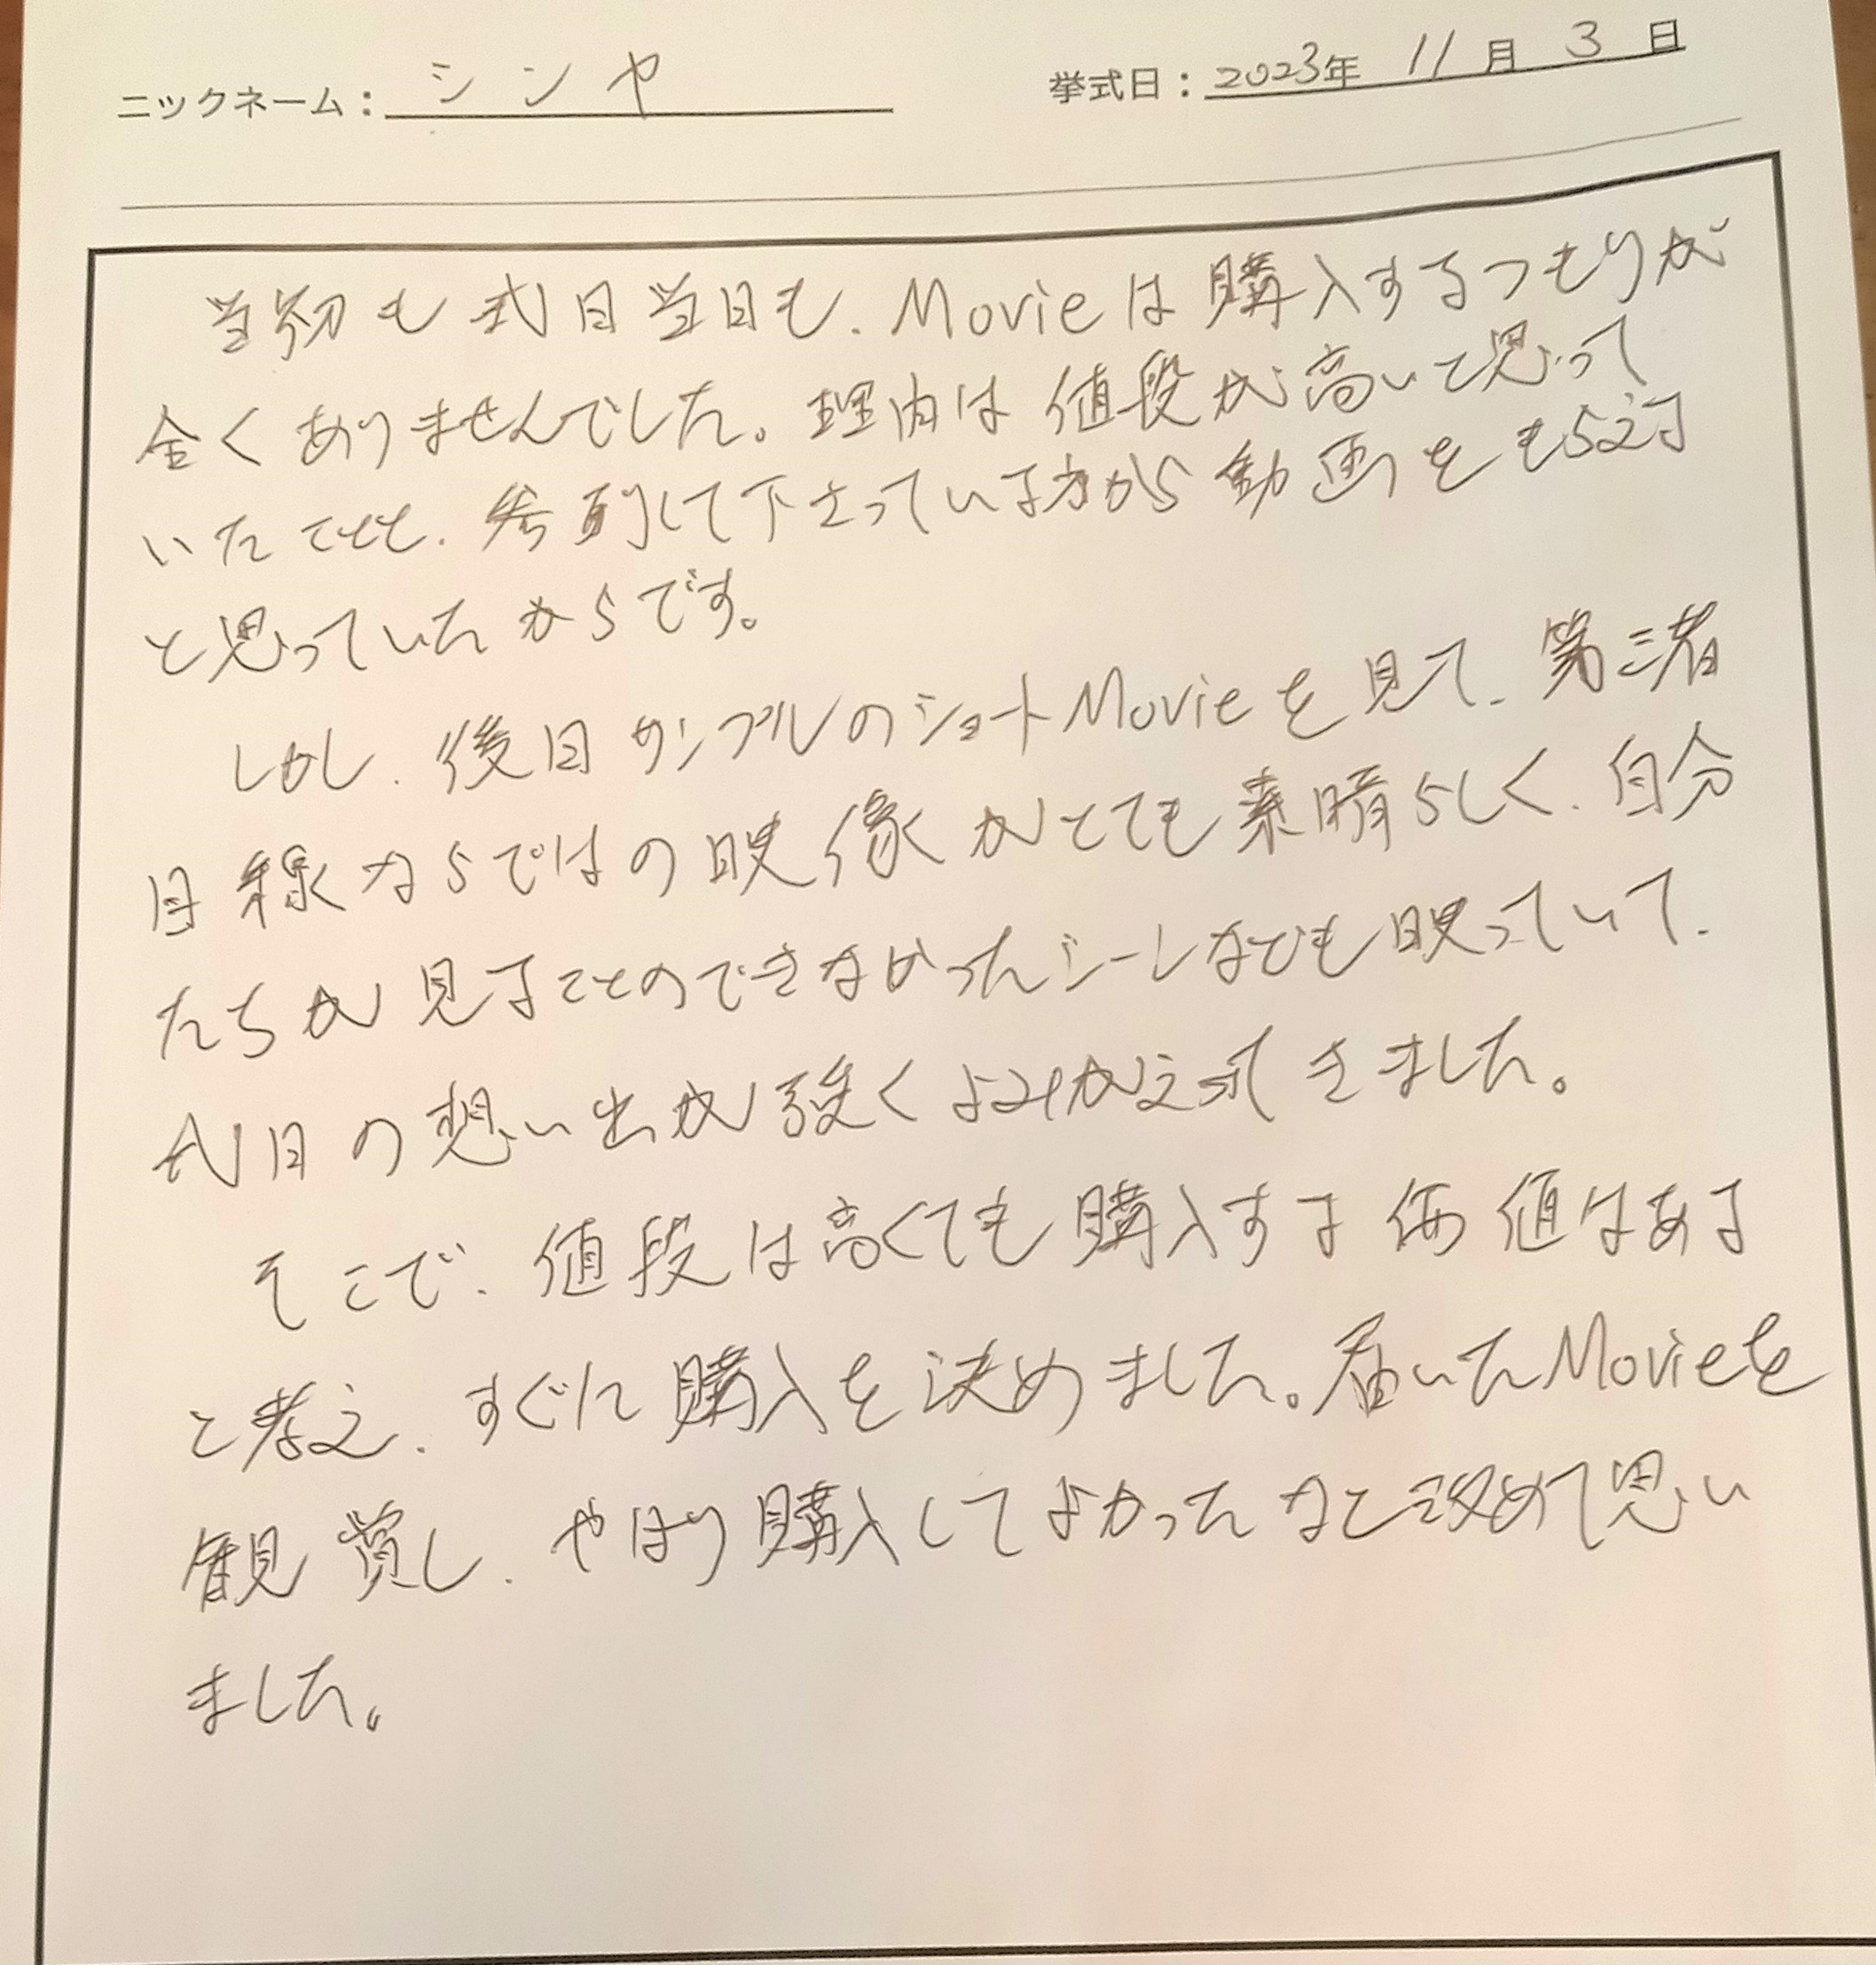 ニックネーム：シンヤ 挙式日：2023年 11月 3日
当初も式日当日も、Movieは購入するつもりが
全くありませんでした。理由は値段が高いと思って
いたことと、参列して下さっている方から動画をもらえる
と思っていたからです。
しかし、後日サンプルのショートMovieを見て、第三者
目線ならではの映像がとても素晴らしく、自分
たちが見ることのできなかったシーンなども映っていて、
式日の想い出が強くよみがえってきました。
そこで、値段は高くても購入する価値はある
と考え、すぐに購入を決めました。届いたMovieを
観賞し、やはり購入してよかったなと改めて思い
ました。